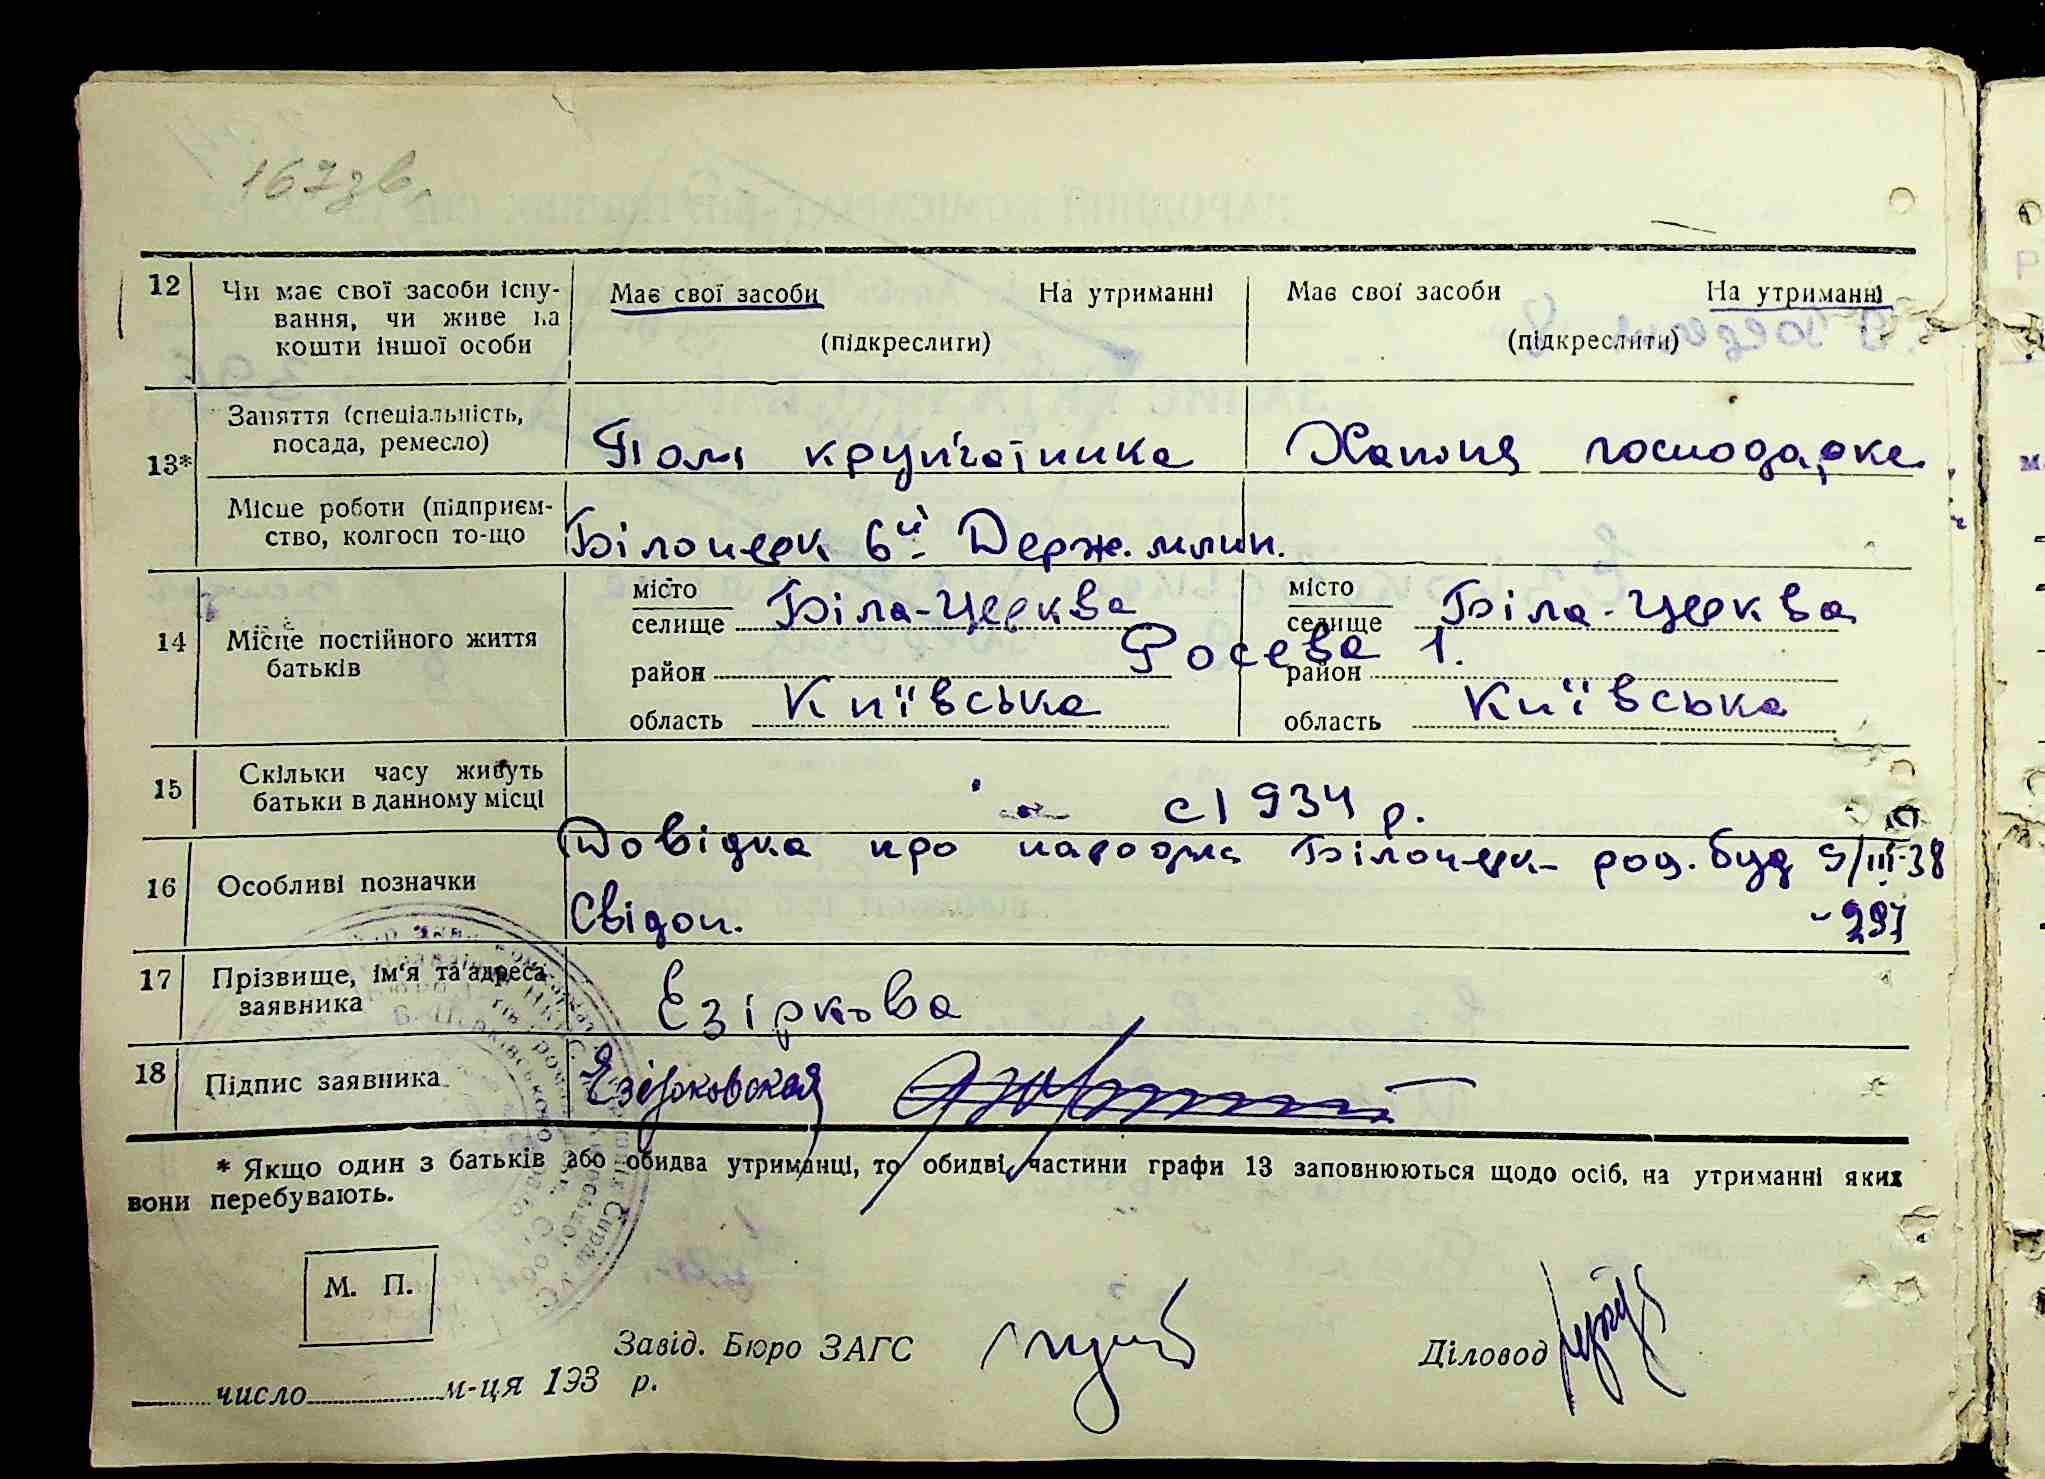 167 зв.
12 Чи має свої засоби існу-
вання, чи живе на
кошти іншої особи
Має свої засоби На утриманні
(підкреслити)
Має свої засоби На утриманні
(підкреслити)
13* Заняття (спеціальність,
посада, ремесло)
крупчатника Хатня господарка
Місце роботи (підприєм-
ство, колгосп то-що
Білоцерк 6й Держ. млин.
14 Місце постійного життя
батьків
місто
селище Біла-Церква
район
область Київська
місто
селище Біла-Церква
Росева 1.
район
область Київська
15 Скільки часу живуть
батьки в данному місці
с 1934 р.
16 Особливі позначки
Довідка про народж Білоцерк род. буд 9/III-38
Свідоц.
17 Прізвище, ім'я та адреса
заявника
Езіркова
18 Підпис заявника
Езерковская
* Якщо один з батьків або обидва утриманці, то обидві частини графи 13 заповнюються щодо осіб, на утриманні яких
вони перебувають.
М. П.
Завід. Бюро ЗАГС
Діловод
число м-ця 193 р.